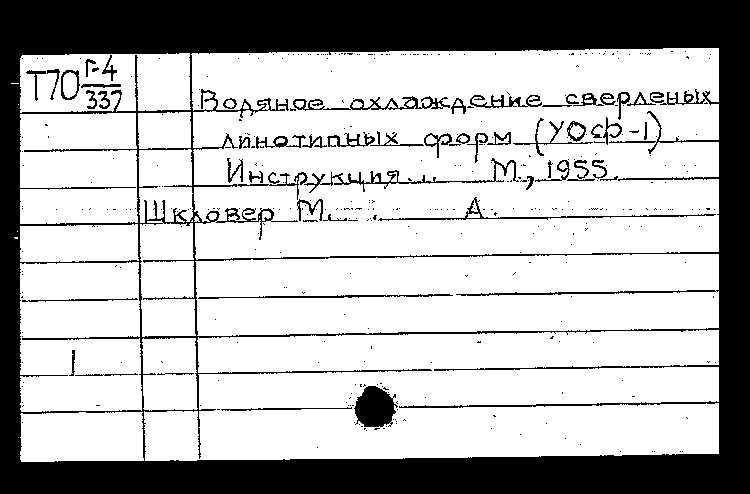 Т70 Г-4
337
Водяное охлаждение сверленых
линотипных форм (УОСФ-1).
Инструкция... М., 1955.
Шкловер М. А.
1